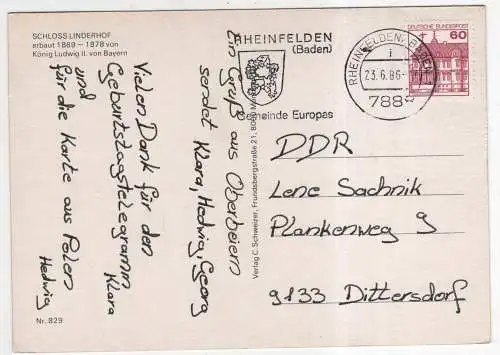 SCHLOSS LINDERHOF
erbaut 1869 – 1878 von
König Ludwig II. von Bayern
Vielen Dank für den
Geburtstagstelegramm
Klara
und
für die Karte aus Polen
Hedwig
Ein Gruß aus Oberbeiern
sendet Klara, Hedwig, Georg
Nr. 829
Verlag C. Schweizer, Frundsbergstraße 21, 8000
RHEINFELDEN
(Baden)
Gemeinde Europas
RHEINFELDEN, BADEN
i
23.6.86
788
DEUTSCHE BUNDESPOST
60
DDR
Lene Sachnik
Plankenweg 9
9133 Dittersdorf